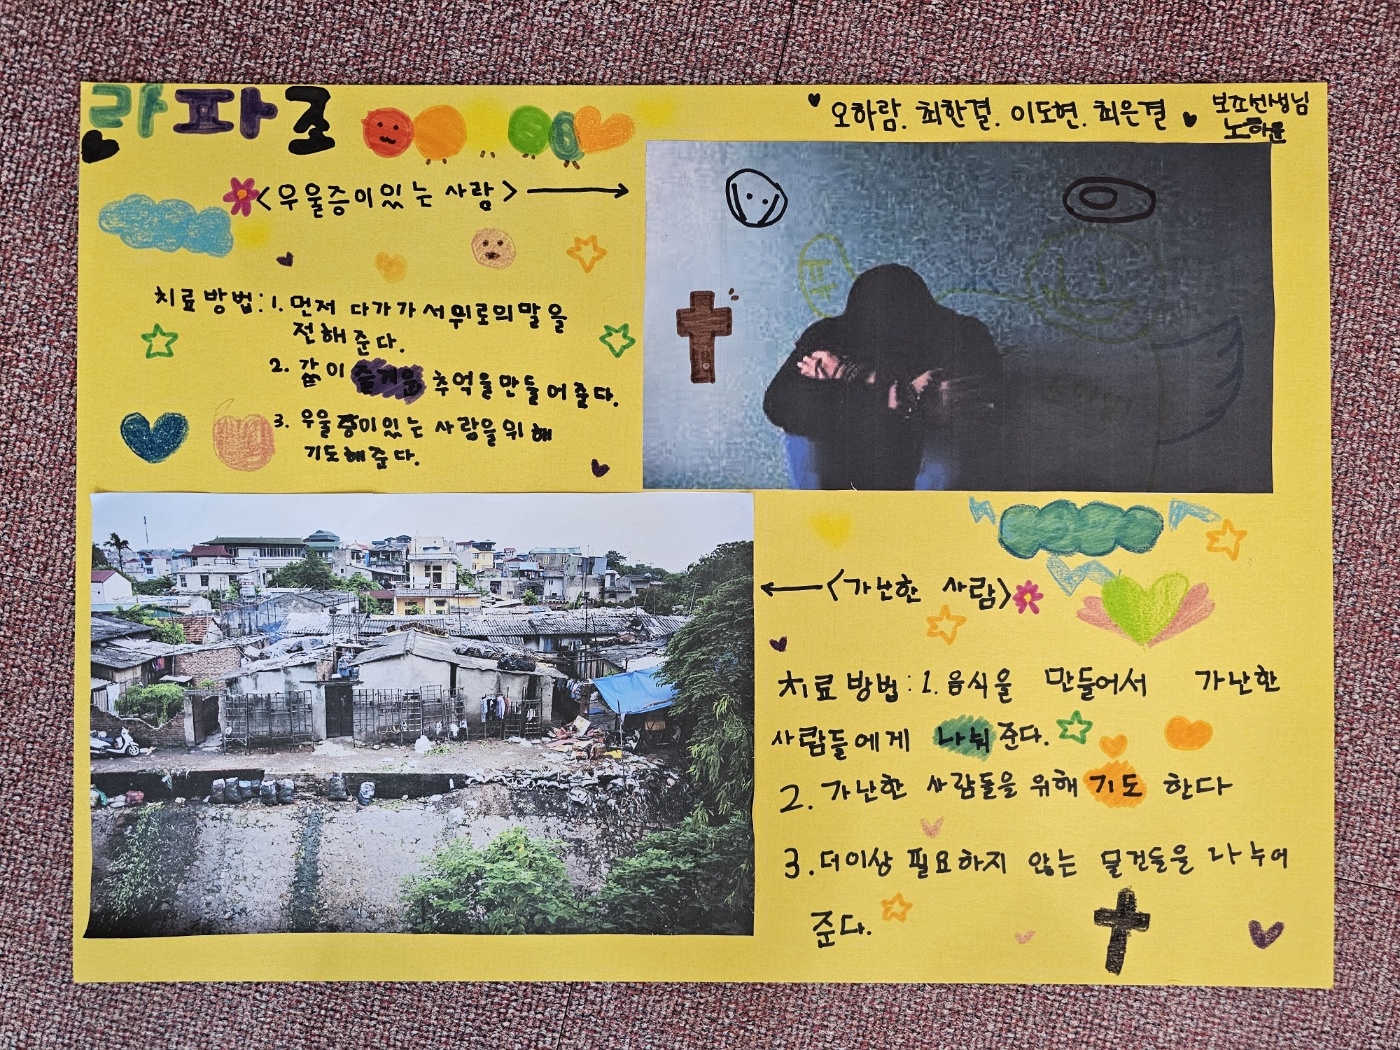 라파조
오하람. 최한결. 이도현. 최은결
보조선생님
노하윤
<우울증이있는 사람>
치료방법: 1. 먼저 다가가서위로의말을
전해준다.
2. 같이 즐거운 추억을만들어준다.
3. 우울증이있는 사람을위해
기도해준다.
<가난한 사람>
치료방법: 1. 음식을 만들어서 가난한
사람들에게 나눠준다.
2. 가난한 사람들을 위해 기도 한다
3. 더이상 필요하지 않는 물건들을 나누어
준다.